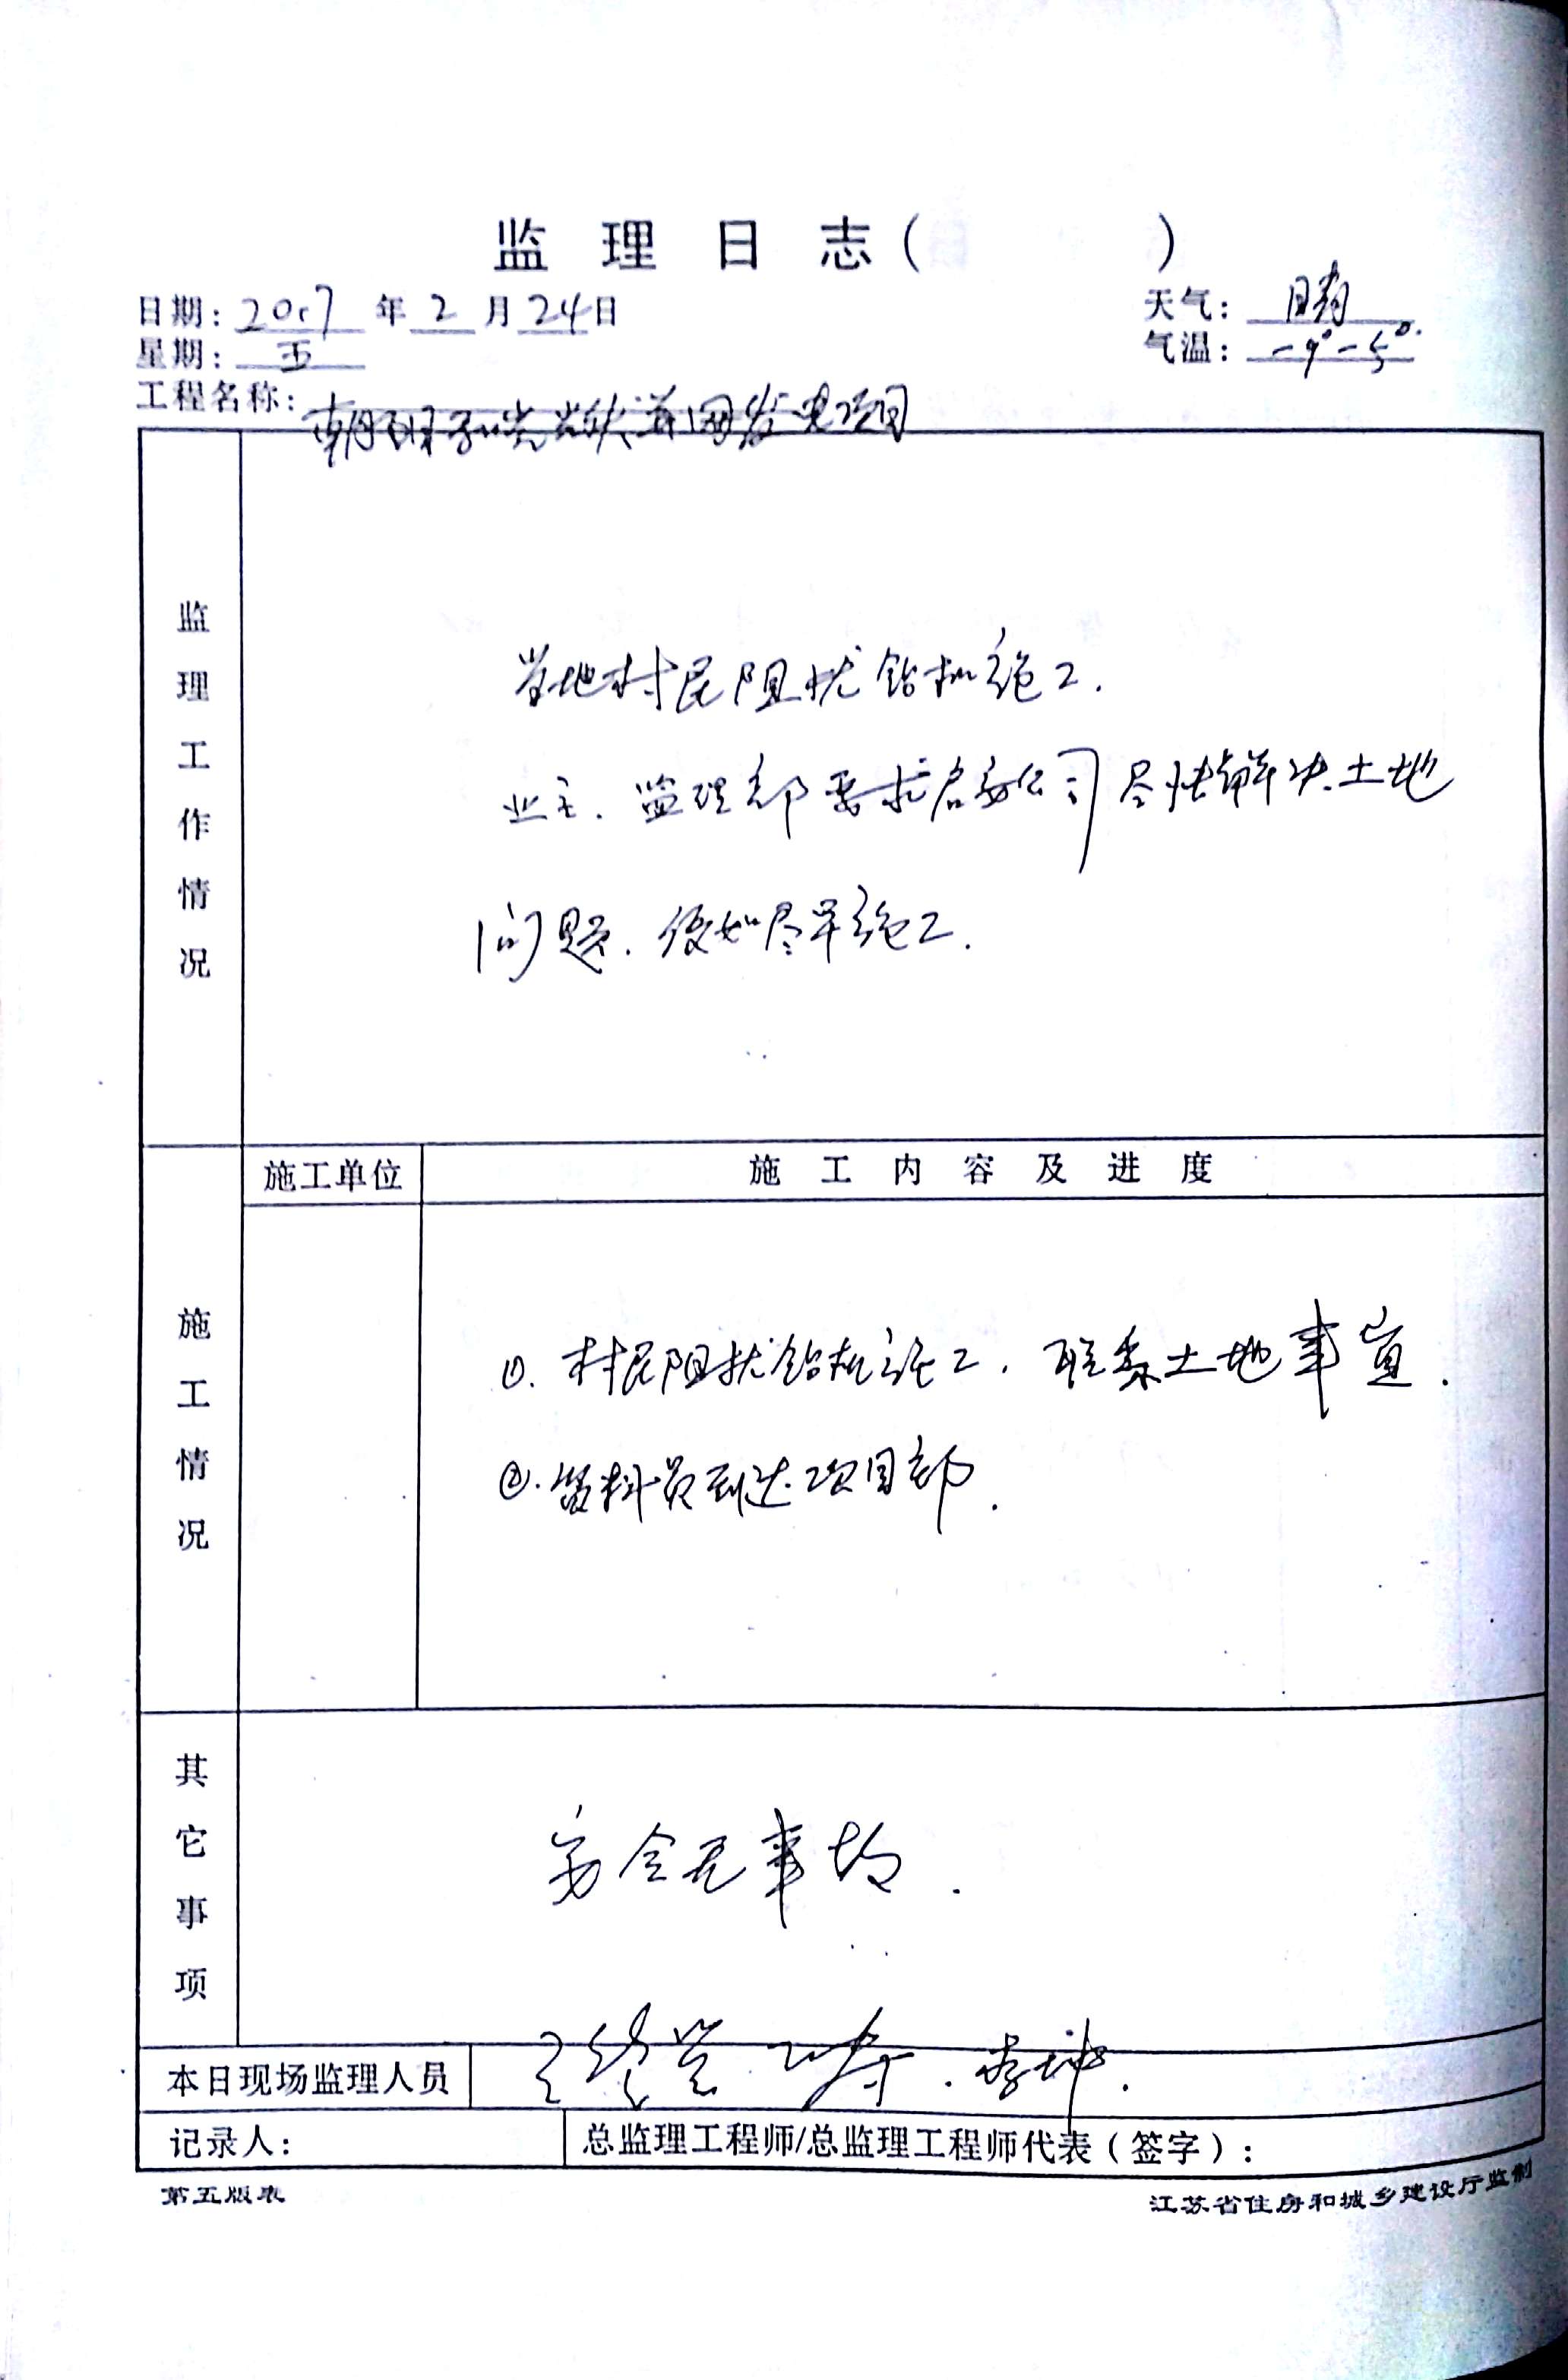 监理日志(      )
日期: 2017 年 2 月 24 日
天气: 晴
星期: 五
气温: -9°-5°.
工程名称: 朝阳 光 并网发电项目
监理工作情况
当地村民阻扰钻机施工.
业主. 监理部要求 公司尽快解决土地
问题. 尽早施工.
施工单位
施工内容及进度
施工情况
①. 村民阻扰钻机施工. 联系土地事宜.
②. 资料员到达项目部.
其它事项
安全无事故.
本日现场监理人员
李坤.
记录人:
总监理工程师/总监理工程师代表(签字):
第五版表
江苏省住房和城乡建设厅监制